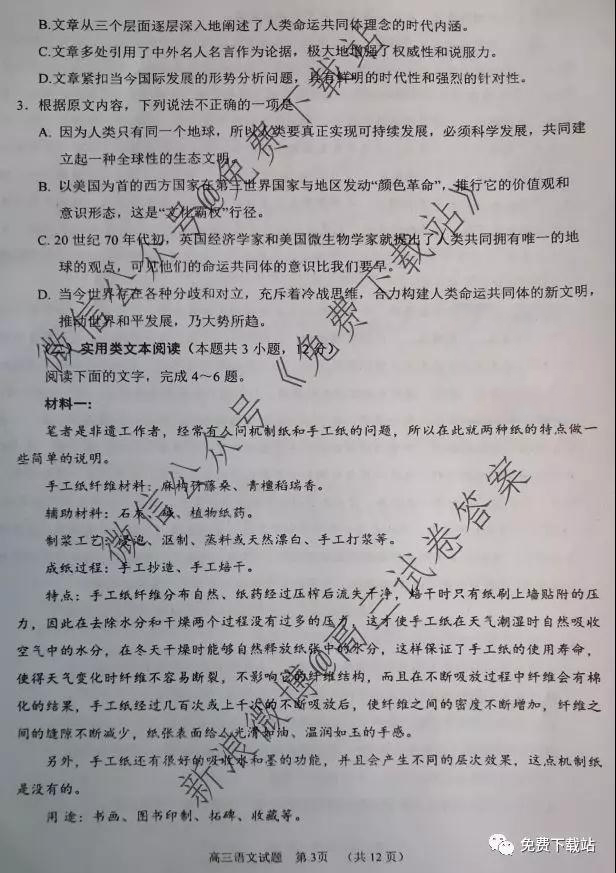 B.文章从三个层面逐层深入地阐述了人类命运共同体理念的时代内涵。
C.文章多处引用了中外名人名言作为论据，极大地增强了权威性和说服力。
D.文章紧扣当今国际发展的形势分析问题，具有鲜明的时代性和强烈的针对性。
3．根据原文内容，下列说法不正确的一项是
A. 因为人类只有同一个地球，所以人类要真正实现可持续发展，必须科学发展，共同建
立起一种全球性的生态文明。
B. 以美国为首的西方国家在第三世界国家与地区发动“颜色革命”，推行它的价值观和
意识形态，这是“文化霸权”行径。
C. 20 世纪 70 年代初，英国经济学家和美国微生物学家就提出了人类共同拥有唯一的地
球的观点，可见他们的命运共同体的意识比我们要早。
D. 当今世界存在各种分歧和对立，充斥着冷战思维，合力构建人类命运共同体的新文明，
推动世界和平发展，乃大势所趋。
（二）实用类文本阅读（本题共 3 小题，12 分）
阅读下面的文字，完成 4～6 题。
材料一：
笔者是非遗工作者，经常有人问机制纸和手工纸的问题，所以在此就两种纸的特点做一
些简单的说明。
手工纸纤维材料：麻构竹藤桑、青檀稻瑞香。
辅助材料：石灰、碱、植物纸药。
制浆工艺：浸泡、沤制、蒸料或天然漂白、手工打浆等。
成纸过程：手工抄造、手工焙干。
特点：手工纸纤维分布自然、纸药经过压榨后流失干净，焙干时只有纸刷上墙贴附的压
力，因此在去除水分和干燥两个过程没有过多的压力，这才使手工纸在天气潮湿时自然吸收
空气中的水分，在冬天干燥时能够自然释放纸张中的水分，这样保证了手工纸的使用寿命，
使得天气变化时纤维不容易断裂，不影响它的纤维结构，而且在不断吸放过程中纤维会有棉
化的结果，手工纸经过几百次或上千次的不断吸放后，使纤维之间的密度不断增加，纤维之
间的缝隙不断减少，纸张表面给人光滑如油、温润如玉的手感。
另外，手工纸还有很好的吸收水和墨的功能，并且会产生不同的层次效果，这点机制纸
是没有的。
用途：书画、图书印制、拓碑、收藏等。
高三语文试题 第 3页 （共 12 页）
微信公众号@免费下载站
微信公众号《免费下载站》
新浪微博@高三试卷答案
免费下载站